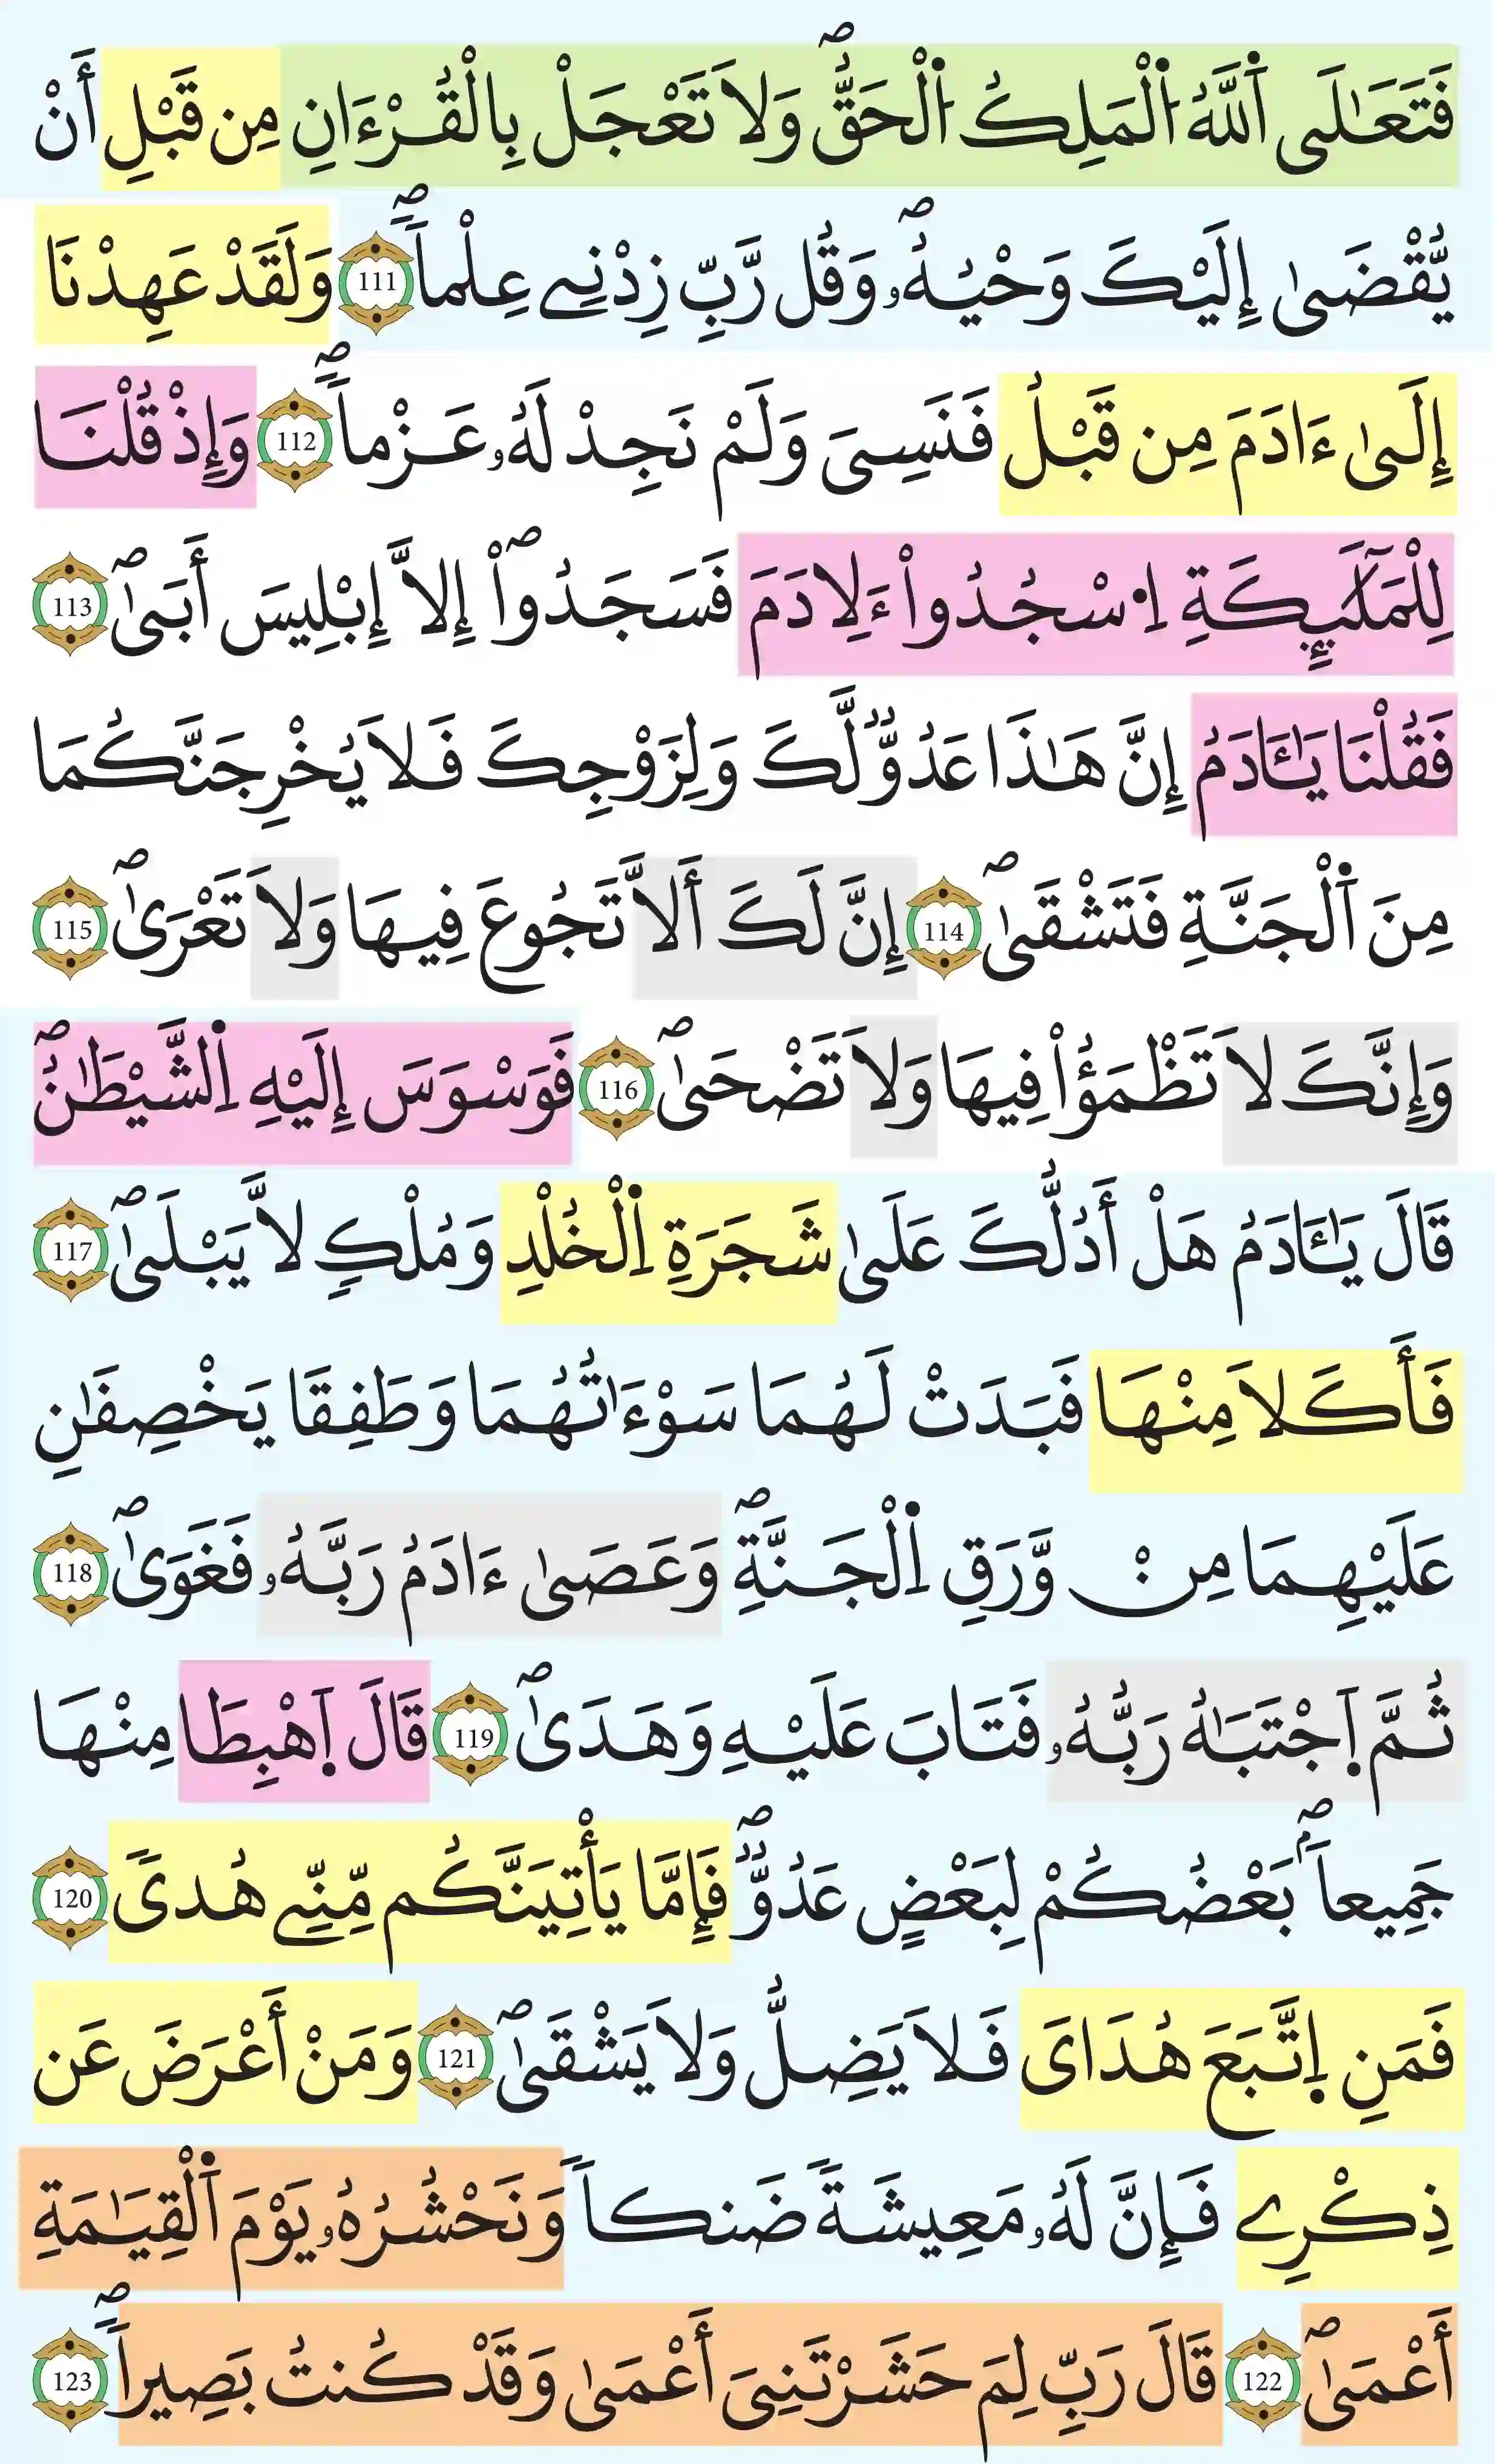 فَتَعَٰلَى اَ۬للَّهُ اُ۬لْمَلِكُ اُ۬لْحَقُّۖ وَلَا تَعْجَلْ بِالْقُرْءَانِ مِن قَبْلِ أَنْ
يُّقْضَىٰ إِلَيْكَ وَحْيُهُۥۖ وَقُل رَّبِّ زِدْنِے عِلْماٗۖ 111 وَلَقَدْ عَهِدْنَا
إِلَىٰ ءَادَمَ مِن قَبْلُ فَنَسِىَ وَلَمْ نَجِدْ لَهُۥ عَزْماٗۖ 112 وَإِذْ قُلْنَا
لِلْمَلَٰٓئِكَةِ اِ۟سْجُدُواْ ءَلِادَمَ فَسَجَدُواْۖ إِلَّا إِبْلِيسَ أَبَىٰۖ 113
فَقُلْنَا يَٰـَٔادَمُ إِنَّ هَٰذَا عَدُوّٞ لَّكَ وَلِزَوْجِكَ فَلَا يُخْرِجَنَّكُمَا
مِنَ اَ۬لْجَنَّةِ فَتَشْقَىٰۖ 114 إِنَّ لَكَ أَلَّا تَجُوعَ فِيهَا وَلَا تَعْرَىٰۖ 115
وَإِنَّكَ لَا تَظْمَؤُاْ فِيهَا وَلَا تَضْحَىٰۖ 116 فَوَسْوَسَ إِلَيْهِ اِ۬لشَّيْطَٰنُۖ
قَالَ يَٰـَٔادَمُ هَلْ أَدُلُّكَ عَلَىٰ شَجَرَةِ اِ۬لْخُلْدِ وَمُلْكٖ لَّا يَبْلَىٰۖ 117
فَأَكَلَا مِنْهَا فَبَدَتْ لَهُمَا سَوْءَٰتُهُمَا وَطَفِقَا يَخْصِفَٰنِ
عَلَيْهِمَا مِنْ وَّرَقِ اِ۬لْجَنَّةِۖ وَعَصَىٰ ءَادَمُ رَبَّهُۥ فَغَوَىٰۖ 118
ثُمَّ اَ۪جْتَبَٰهُ رَبُّهُۥ فَتَابَ عَلَيْهِ وَهَدَىٰۖ 119 قَالَ اَ۪هْبِطَا مِنْهَا
جَمِيعاَۢۖ بَعْضُكُمْ لِبَعْضٍ عَدُوّٞۖ فَإِمَّا يَأْتِيَنَّكُم مِّنِّے هُدىٗ 120
فَمَنِ اِ۪تَّبَعَ هُدَاىَ فَلَا يَضِلُّ وَلَا يَشْقَىٰۖ 121 وَمَنْ أَعْرَضَ عَن
ذِكْرِے فَإِنَّ لَهُۥ مَعِيشَةٗ ضَنكاٗ وَنَحْشُرُهُۥ يَوْمَ اَ۬لْقِيَٰمَةِ
أَعْمَىٰۖ 122 قَالَ رَبِّ لِمَ حَشَرْتَنِىَ أَعْمَىٰ وَقَدْ كُنتُ بَصِيراٗۖ 123